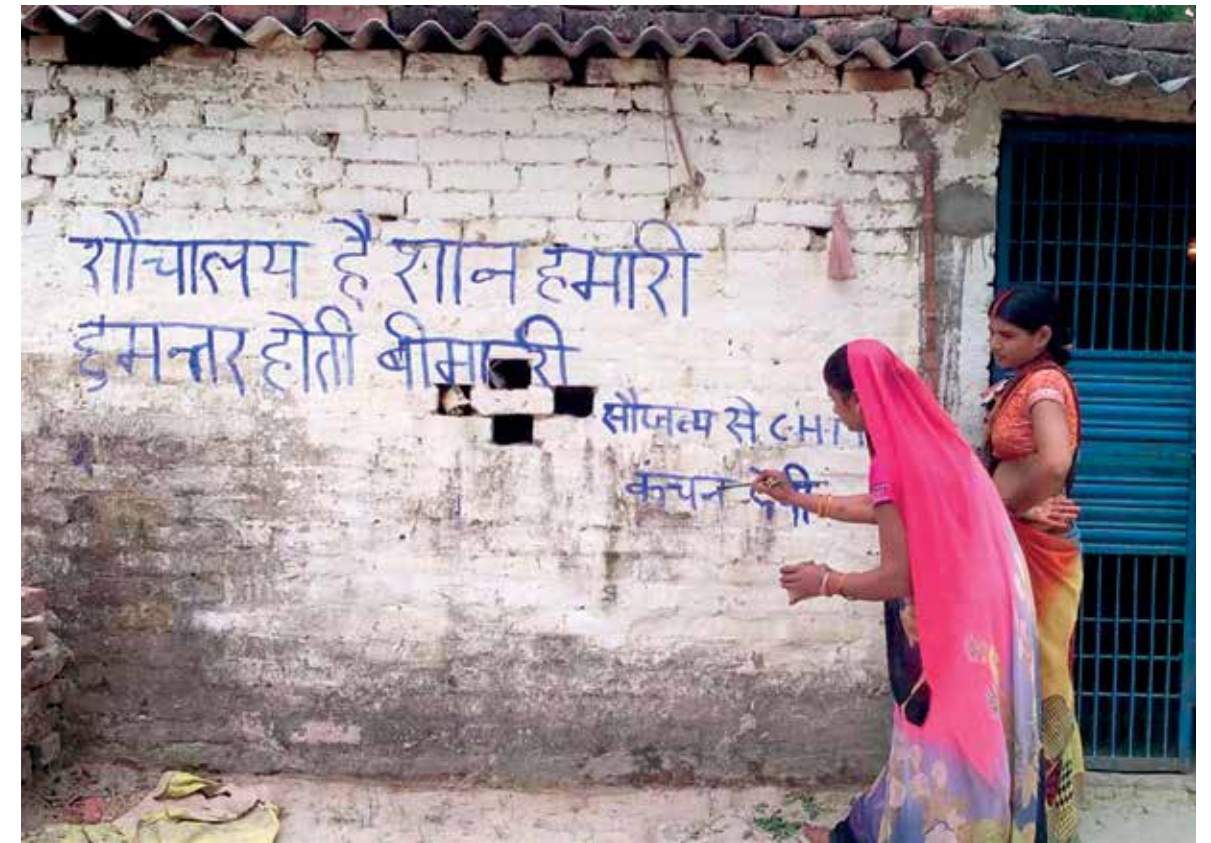 शौचालय है शान हमारी
छुमन्तर होती बीमारी
सौजन्य से C.H.
कंचन देवी